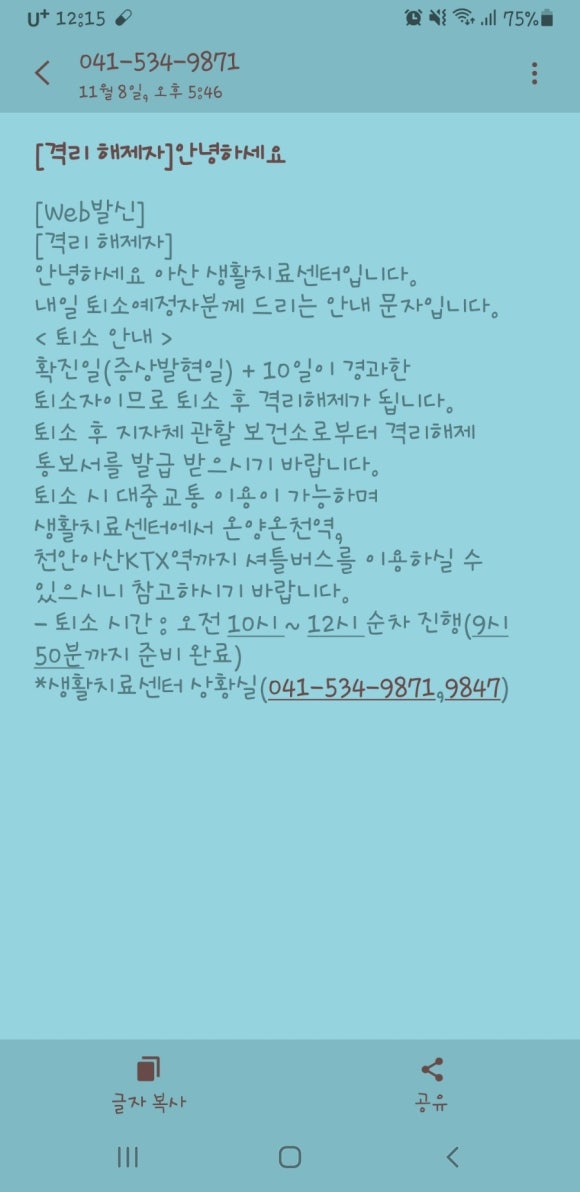 U+ 12:15 75%
041-534-9871
11월 8일, 오후 5:46
[격리 해제자]안녕하세요
[Web발신]
[격리 해제자]
안녕하세요 아산 생활치료센터입니다.
내일 퇴소예정자분께 드리는 안내 문자입니다.
< 퇴소 안내 >
확진일(증상발현일) + 10일이 경과한
퇴소자이므로 퇴소 후 격리해제가 됩니다.
퇴소 후 지자체 관할 보건소로부터 격리해제
통보서를 발급 받으시기 바랍니다.
퇴소 시 대중교통 이용이 가능하며
생활치료센터에서 온양온천역,
천안아산KTX역까지 셔틀버스를 이용하실 수
있으시니 참고하시기 바랍니다.
- 퇴소 시간 : 오전 10시 ~ 12시 순차 진행(9시
50분까지 준비 완료)
*생활치료센터 상황실(041-534-9871,9847)
글자 복사 공유